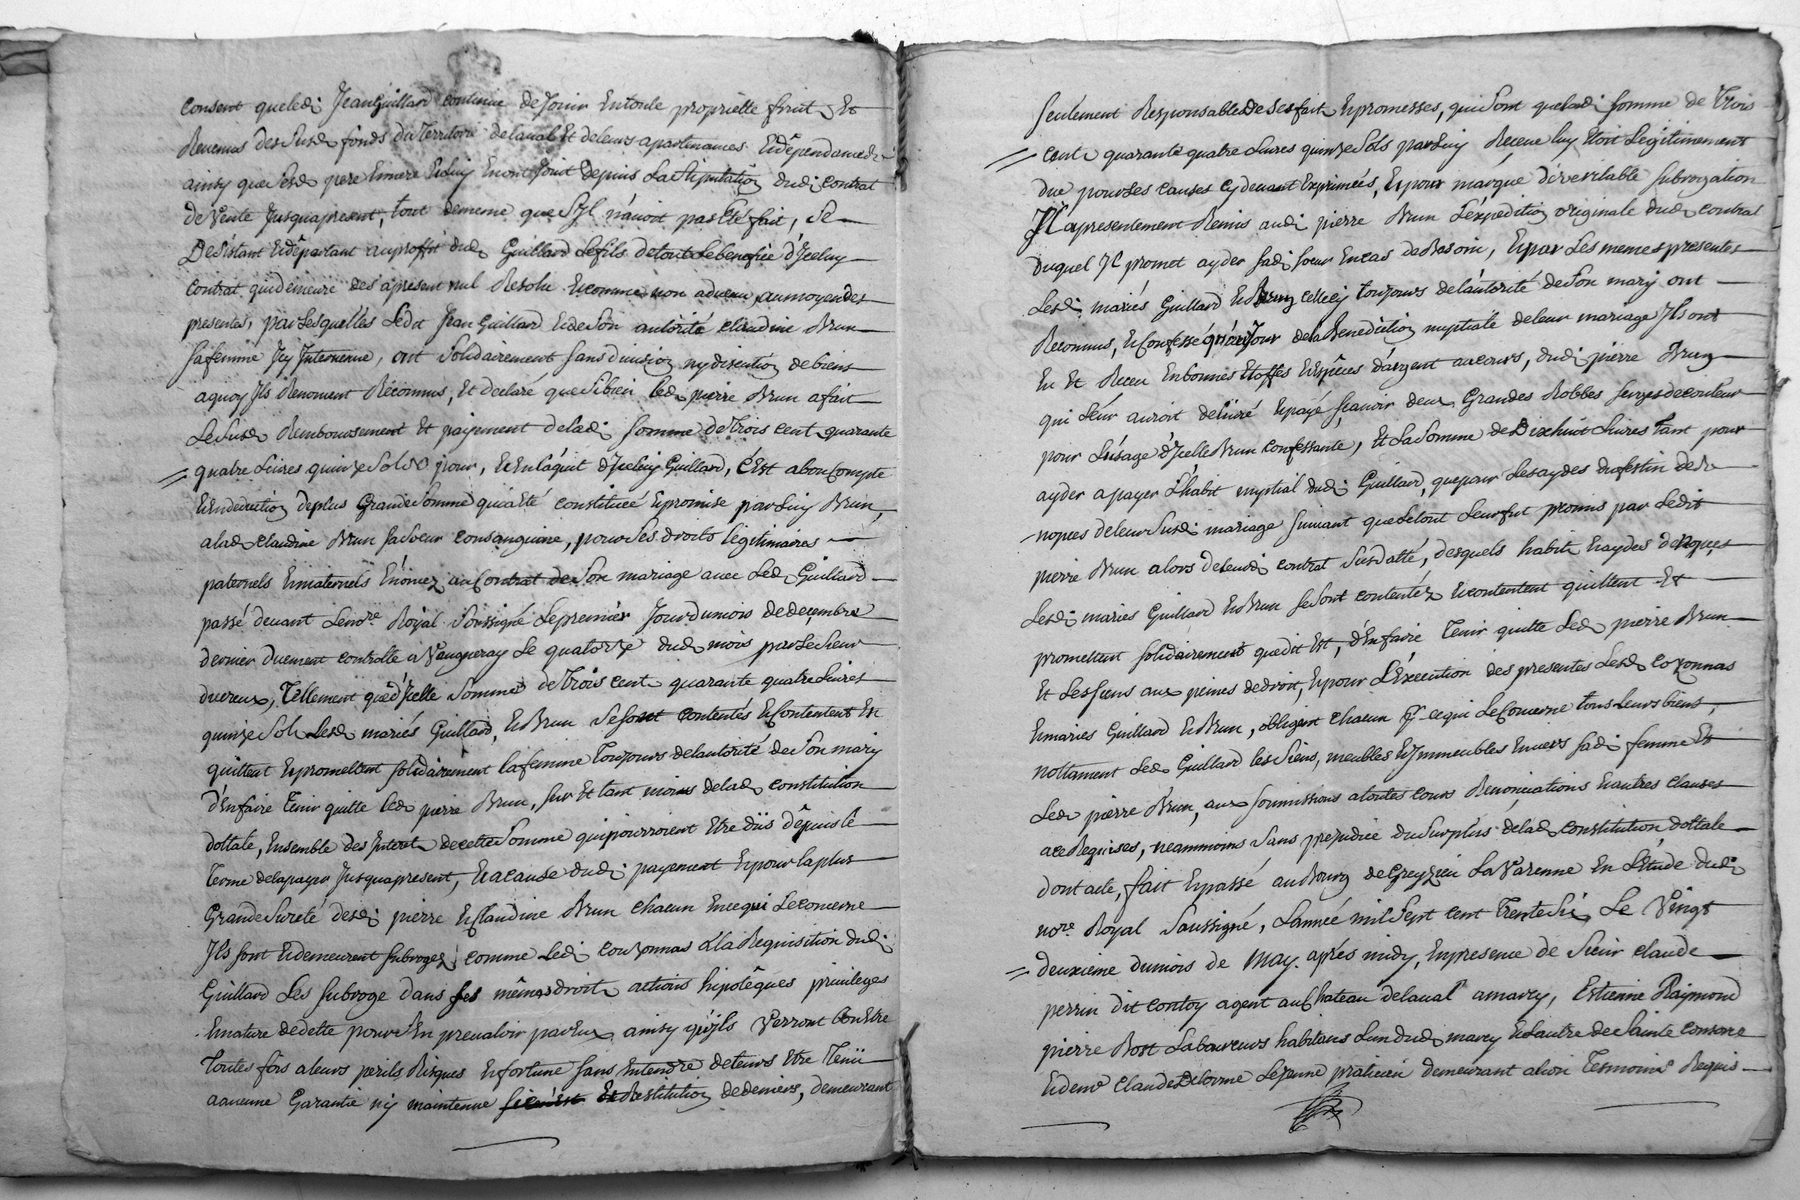 consent queledt Jean Guillard continue de Jouir Entoute proprietté fruit Et
Revenus des Susd fonds du Territoire delaval Et deleurs apartenances Edépendances
ainsy que Sesd pere Emere Eluy Enont Jouit depuis la Stipulation dudt contrat
de Vente Jusquapresent, tout dememe que Syl n'avoit pas Eté fait, Se
Desistant Edépartant auproffit dudt Guillard Lefils detout Lebenefice d'Jceluy
contrat quidemeure des apresent nul Resolu Ecomme non advenu aumoyen des
presentes, par Lesquelles Ledt Jean Guillard Ede Son autorité claudine Brun
sa femme Jcy Jntervenue, ont solidairement sans division ny discution de biens
aquoy Jls Renoncent Reconnus, Et declaré que Sibien led pierre Brun a fait
Le Susd Remboursement Et paiyement deladt somme de Trois cent quarante
quatre Livres quinze Sols pour, Et En l'aquit d'Jceluy Guillard, C'Est abon Compte
Et Endeduction deplus Grande Somme qui a Eté constituée Epromise par Luy Brun,
alad claudine Brun sa Soeur consanguine, pour Ses droits legitimaires
paternels Ematernels Enoncez au Contrat de Son mariage avec Led Guillard
passé devant Lenore Royal Soussigné Lepremier Jour du mois de decembre
dernier duement controllé a Vaugneray Le quatorze dud mois par le Sieur
ducreux, Tellement que d'Jcelle Somme de Trois cent quarante quatre Livres
quinze Sols Lesd mariés Guillard, Et Brun se sont contentés Econtentent En
quittent Epromettent solidairement lafemme Toujours delautorité de Son mary
d'En faire Tenir quitte led pierre Brun, sur Et tant moins delad constitution
dottale, Ensemble des Interets decette Somme quipourroient Etre dûs depuis le
Terme delapayer Jusquapresent, Eacause dudt payement Epour la plus
Grande Sureté desdt pierre Eclaudine Brun chacun Encequi Leconcerne
Jls sont Edemeurent subrogez comme Ledt couzonnas a la Requisition dudt
Guillard Les subroge dans ses mêmes droits actions hipotêques privileges
Enature dedette pour s'En prevaloir par Eux ainsy qu'jls Verront bon Etre
Toutes fois aleurs perils Risques Enfortune sans Entendre deleurs Etre Tenû
aaucune Garantie ny maintenue Restitution dedeniers, demeurant
Seulement Responsable de Ses fait Epromesses, qui Sont queladt somme de Trois
cent quarante quatre Livres quinze Sols par Luy Receue luy Etoit Legitimement
due pour Les causes cy devant Exprimées, Epour marque deveritable subrogation
Jl apresentement Remis audt pierre Brun L'expedition originale dudt contrat
duquel Jl promet ayder sadt soeur Encas de Besoin, Epar Les memes presentes
Lesdt mariés Guillard Et Brun celle cy toujours delautorité de Son mary ont
Reconnus, Econfessé qu'au Jour dela Benediction nuptiale deleur mariage Jls ont
Eu Et Receu Enbonnes Etoffes Espêces d'argent aucours, dudt pierre Brun
qui Leur auroit delivré Epayé, Scavoir deux Grandes Robbes serges de couleur
pour L'usage d'Jcelle Brun confessante, Et La Somme de Dixhuit Livres tant pour
ayder apayer L'habit nuptial dudt Guillard, que pour Les aydes du festin des
nopces de leur Susdt mariage suivant que Letout Leur fut promis par Ledit
pierre Brun alors deleurdt contrat Susdatté, desquels habits Eaydes denopces
Lesdt mariés Guillard Et Brun se Sont contentéz Econtentent quittent Et
promettent solidairement que dit Est, d'En faire Tenir quitte Led pierre Brun
Et Les Siens aux peines de droit, Epour L'Execution des presentes Lesd cozonnas
Emaries Guillard Et Brun, obligent chacun pr cequi Leconcerne tous Leurs biens,
nottament Led Guillard les Siens, meubles Et Jmmeubles Envers sadt femme Et
Led pierre Brun, aux soumissions atoutes cours Renonciations Eautres clauses
ace Requises, neammoins Sans prejudice du Surplus delad constitution dottale
dont acte, fait Epassé au Bourg de Greyzieu La Varenne En L'Etude dudt
nore Royal Soussigné, Lannée mil Sept cent Trente Six Le Vingt
deuxieme dumois de May. aprés midy, Enpresence de Sieur claude
perrin dit contoy agent au Chateau delaval amarcy, Estienne Raymond
pierre Bost Laboureurs habitans Lun dud marcy Elautre de Sainte consorce
Edeme claude Delorme Lejeune praticien demeurant alion Tesmoins Requis